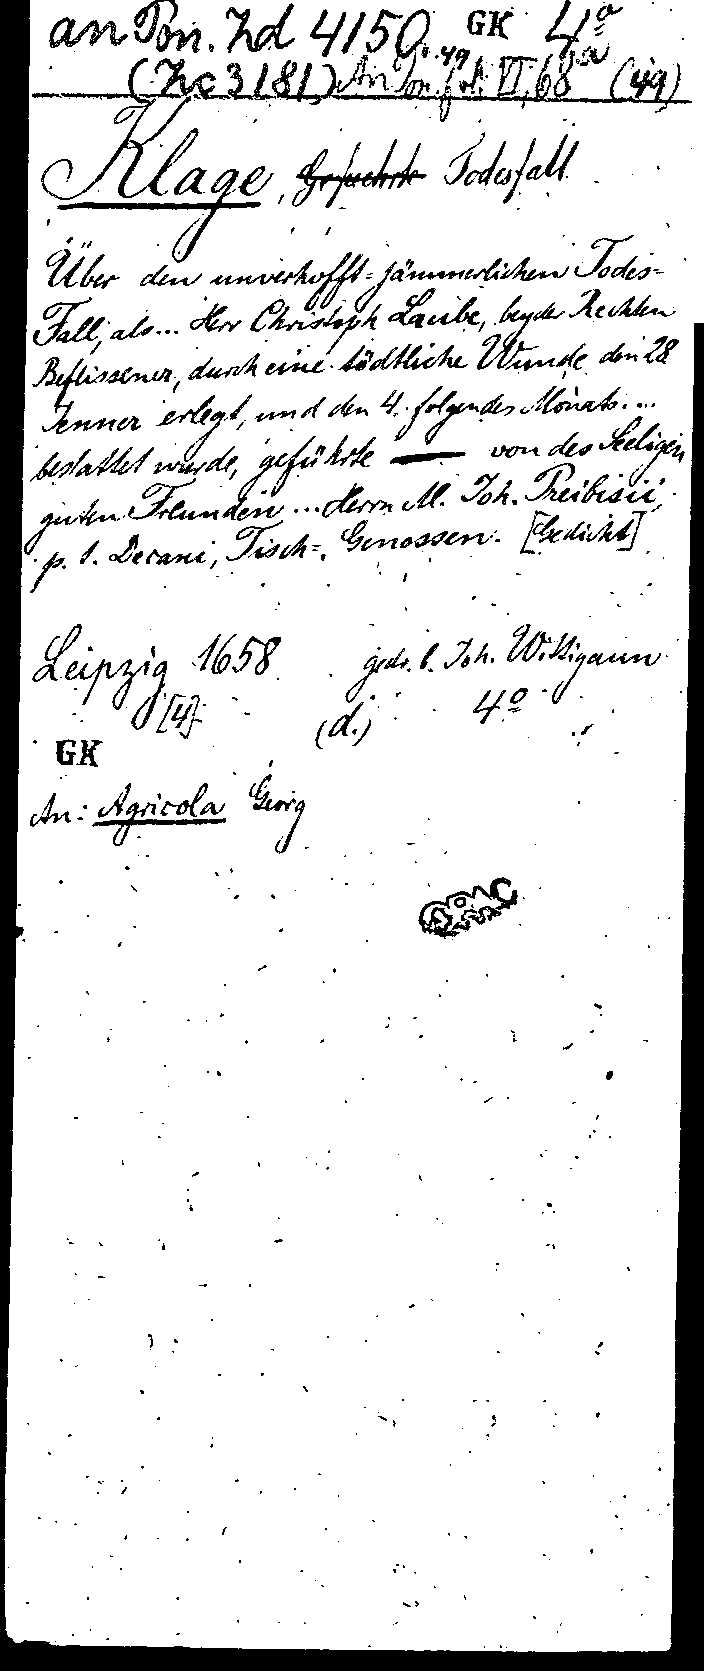 an Pon. Zd 4150. GK 4º
(Zc 3181) An Pon. fol. VI, 68a (49)
Klage, Todesfall
Über den unverhofft=jämmerlichen Todes-
Fall, als... Herr Christoph Laube, beyder Rechten
Beflissener, durch eine tödtliche Wunde den 28
Jenner erlegt, und den 4. folgendes Monats....
bestattet wurde, geführte — von des Seeligen
guten Freunden ... Herrn M. Joh. Preibisii,
p. t. Decani, Tisch=Genossen. [Gedicht]
Leipzig 1658 gedr. b. Joh. Wittigaun
[4] (d.) 4º
GK
An: Agricola Georg